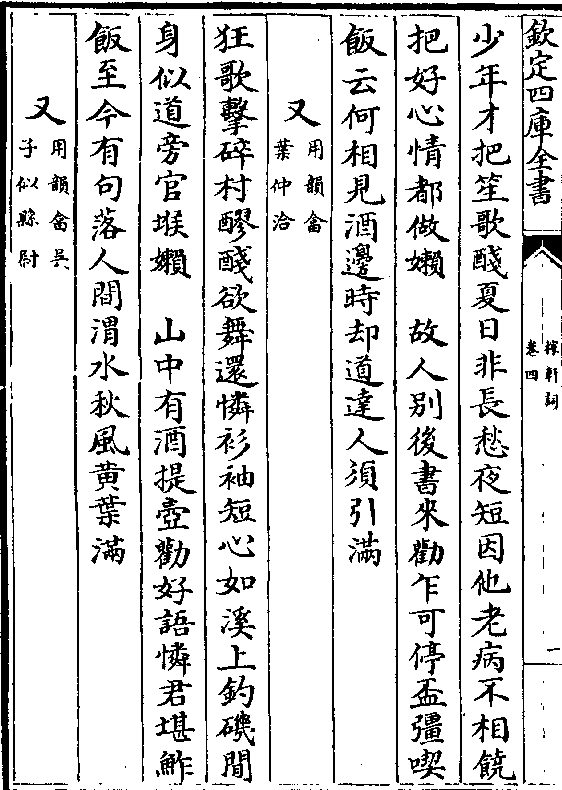 欽定四庫全書
稼軒詞
卷四
一
少年才把笙歌醆夏日非長愁夜短因他老病不相饒
把好心情都做嬾　故人别後書來勸乍可停盃彊喫
飯云何相見酒邊時却道達人須引滿
又用韻畣
葉仲洽
狂歌擊碎村醪醆欲舞還憐衫袖短心如溪上釣磯閒
身似道旁官堠嬾　山中有酒提壺勸好語憐君堪鮓
飯至今有句落人間渭水秋風黄葉滿
又用韻畣吴
子似縣尉